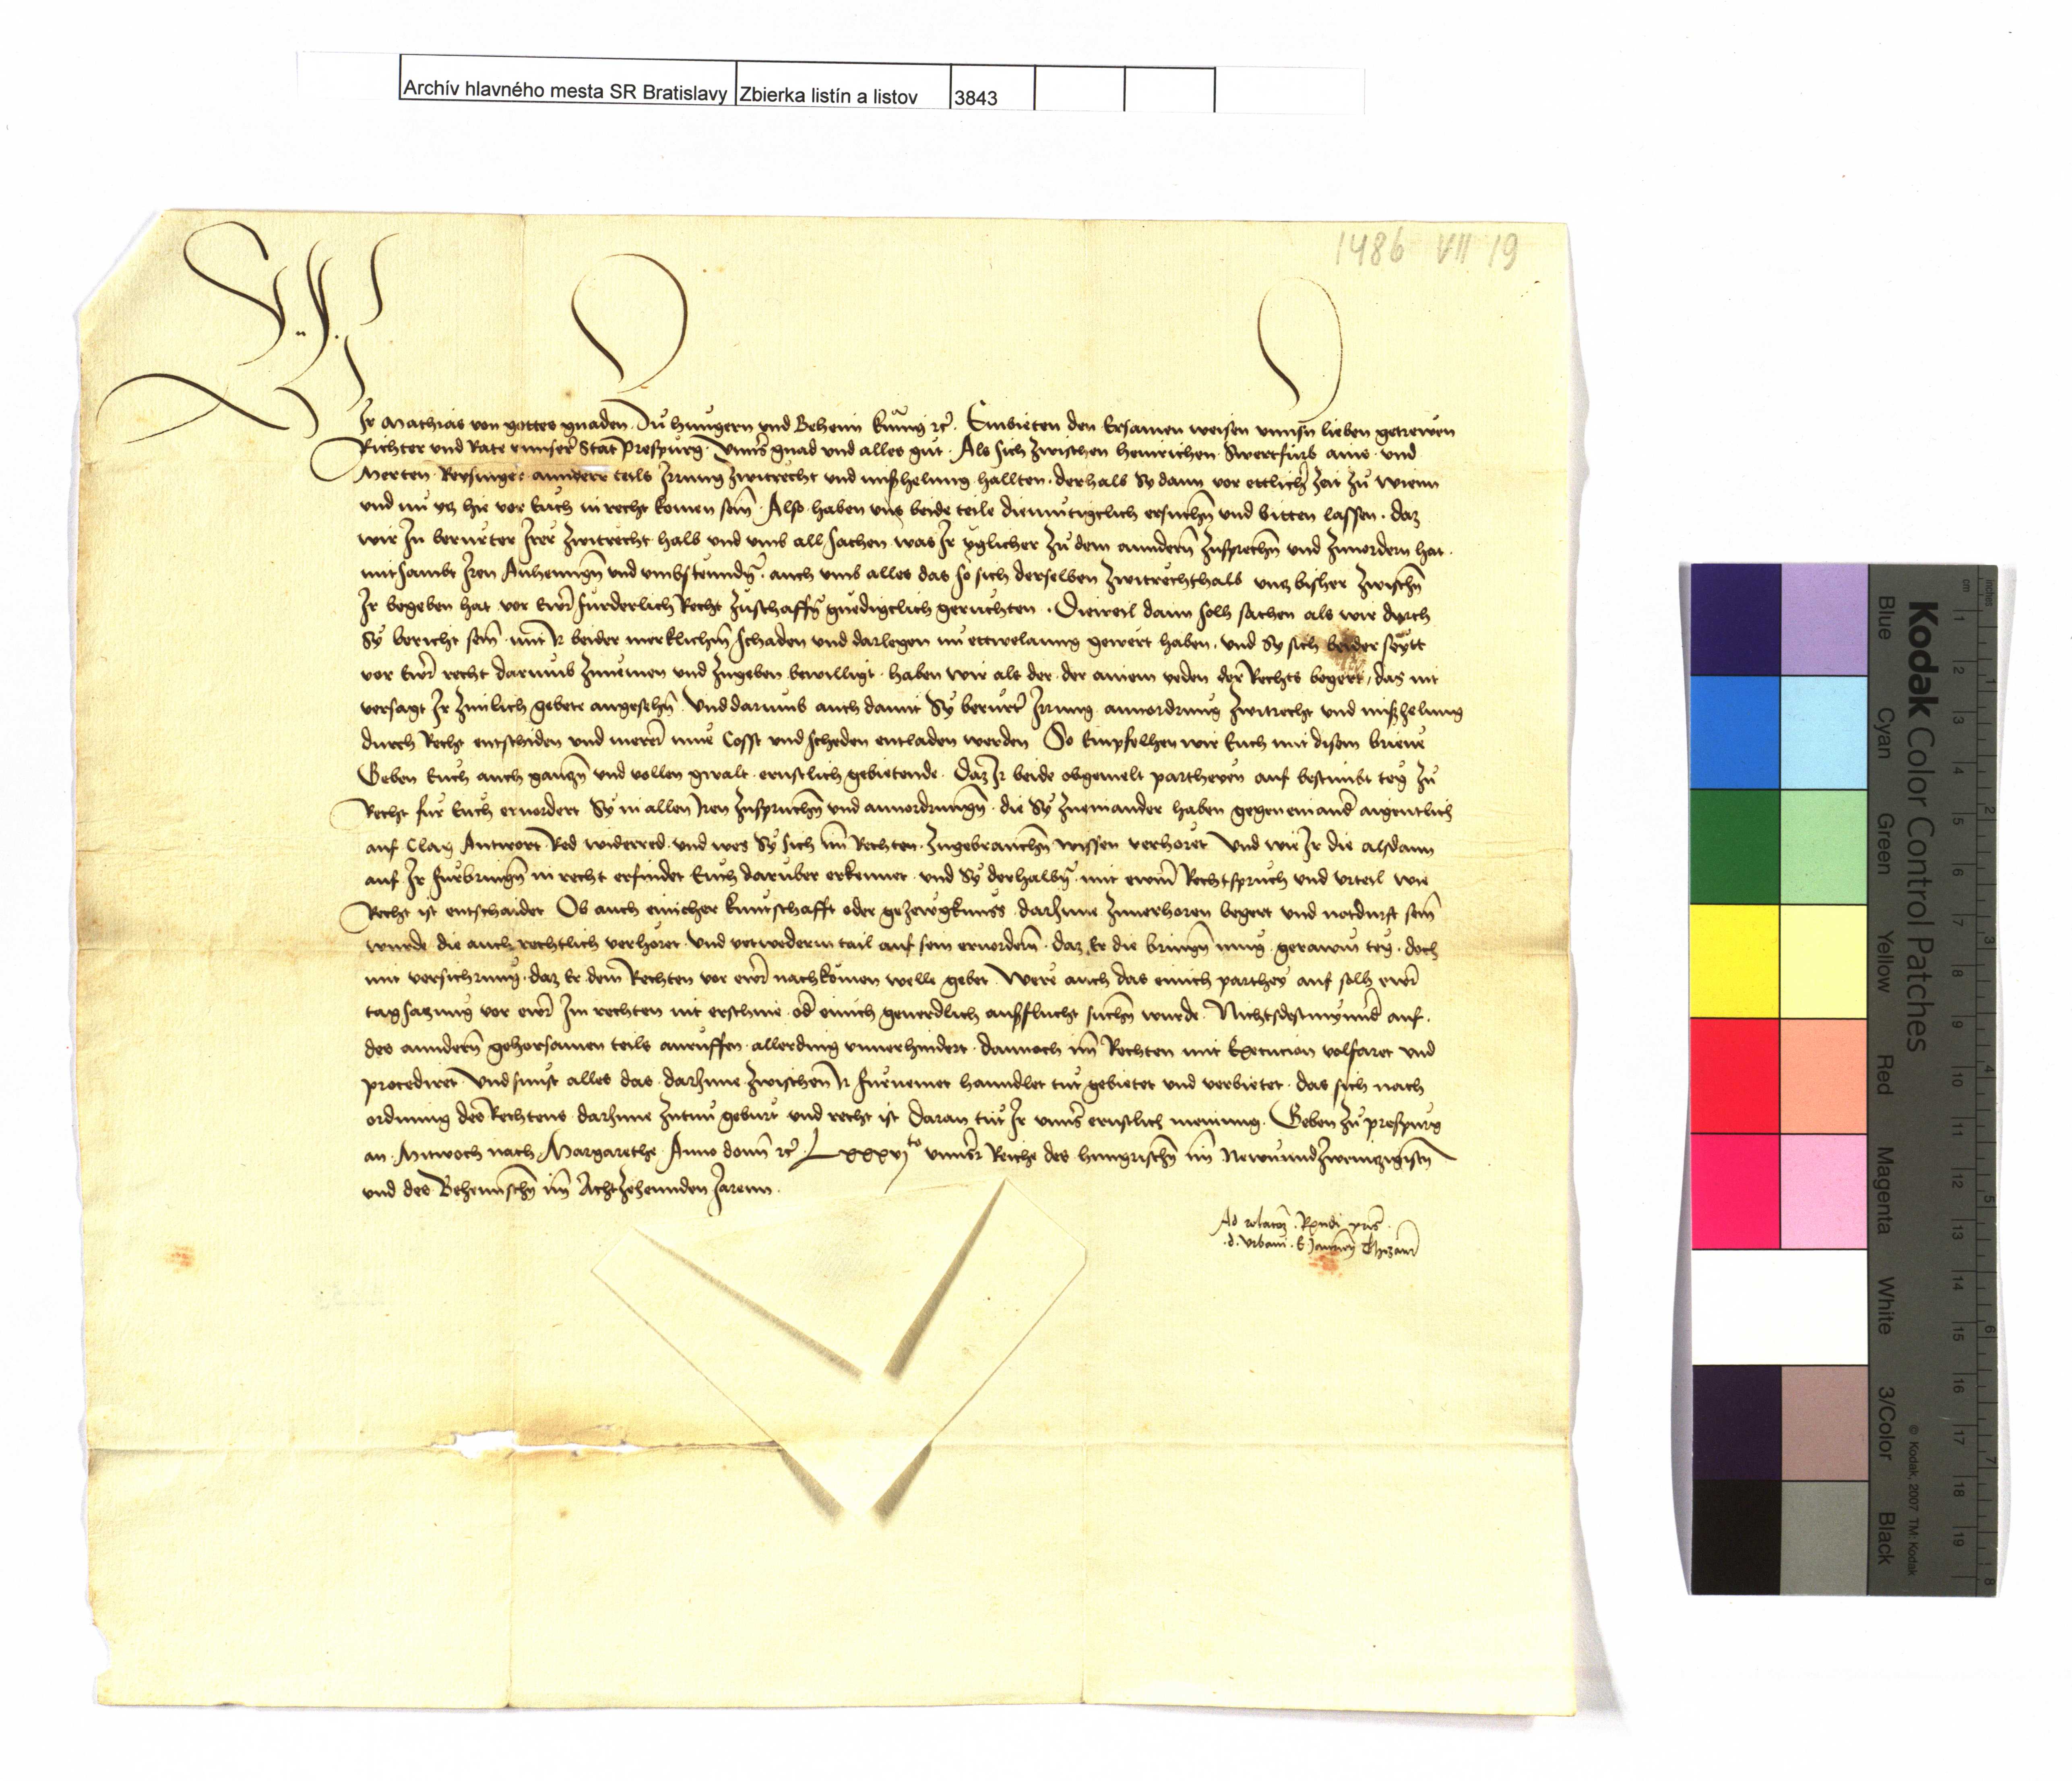 Archív hlavného mesta SR Bratislavy Zbierka listín a listov 3843
1486 VII 19
Wir Mathias von gottes gnaden Zu hungern und Beheim kunig etc. Embieten den Ersamen weisen unnsn lieben getrewen
Richter und Rate unnser Stat Prespurg. Unns gnad und alles gut. Als sich zwischen heinrichen Swertfurb ains und
Merten Reysinger annders teils Irrung zwitrecht und mißhelung hallten. derhalb Sy dann vor ettlicher zeit zu wienn
und nu yz hie vor Euch in recht komen sein. Also haben uns beide teile diemutigclich ersuchn und bitten lassen. daz
wir In berurter Irer zwitrecht halb und umb all sachen was Ir yglicher zu dem anndern zusprechn und zuvordern hat.
mitsambt Iren Anhenngn und umbstenndn. auch umb alles das so sich derselben zwitrechthalb unz bisher zwischn
Ir begeben hat vor Ewr furderlich Recht zuschaffn gnedigclich geruchten. Dieweil dann solh sachen als wir durch
Sy bericht sein mit Ir beider merklichm schaden und darlegen nu ettwelanng gewert haben. und Sy sich beider seytt
vor Ewr recht darumb zunemen und zugeben bewilligt. haben wir als der. der ainem yeden der Rechts begert, das nit
versagt Ir zimlich gebete angesehn. Und darumb auch damit Sy berurt Irrung anvordrung zwitrecht und mißhelung
durch Recht entschiden und merer mue Cosst und scheden entladen werden So Empfelhen wir Euch mit disem brieve
Geben Euch auch ganzn und vollen gwalt. ernstlich gebietende. Daz Ir beide obgemelt partheyen auf bestimbt teg zu
Recht fur Euch ervordert Sy in allen Iren zuspruchn und anvordrungn. die Sy zueinander haben gegeneinand aigentlich
auf Clag Antwort Red widerred. und wes Sy sich im Rechten zugebrauchn wissen verhoret Und wie Ir die alsdann
auf Ir furbringn in recht erfindet Euch daruber erkennet und Sy derhalbn mit ewrm Rechtspruch und urteil wie
Recht ist entschaidet Ob auch einicher kuntschafft oder gezewgknuss darInne zuverhoren begert und notdurft sein
wurde die auch rechtlich verhoret. Und yetwederm tail auf sein ervordern. daz Er die bringn mug. gerawm teg. doch
mit versichrung. daz Er dem Rechten vor ewr nachkomen welle gebet. Were auch das einich parthey auf solh ewr
tagsazung vor ewr Im rechten nit erschine. od einich geverdlich außflucht suchn wurde. Nichtsdestmynnd auf.
des anndern gehorsamen teils anruffen. allerding unverhindert. dannoch im Rechten mit Execucion volfaret und
procediret Und sunst alles das darInne zwischen Ir furnemet hanndlet tut gebietet und verbietet. das sich nach
ordnung des Rechtens darInne zutun geburt und recht ist Daran tut Ir unns ernstlich meinung. Geben zu prespurg
an Mitwoch nach Margarethe Anno domi etc. Lxxxvjto unnsr Reiche des hungrischn im Newnundzweinzigistn
und des Behemischn im Achtzehennden Jarenn.
Ad relacoz. Rxndi pris.
.d. Urbani. E Jaurien Thezaur
Kodak Color Control Patches
Blue Cyan Green Yellow Red Magenta White 3/Color Black
© Kodak, 2007 TM: Kodak
cm 1 2 3 4 5 6 7 8 9 10 11 12 13 14 15 16 17 18 19
inches 1 2 3 4 5 6 7 8